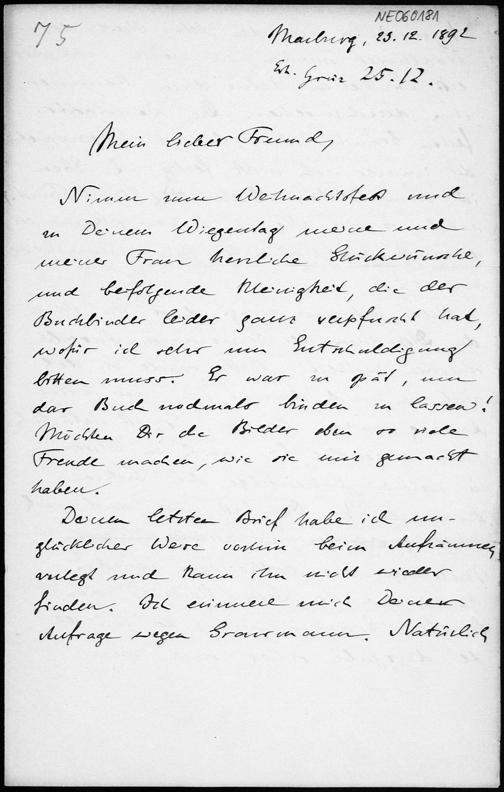 75
NE060181
Marburg, 23.12.1892
Erh. Graz 25.12.
Mein lieber Freund,
Nimm zum Weihnachtsfest und
zu Deinem Wiegentag meine und
meiner Frau herzliche Glückwünsche,
und befolgende Kleinigkeit, die der
Buchbinder leider ganz verpfuscht hat,
wofür ich sehr um Entschuldigung
bitten muss. Es war zu spät, um
das Buch nochmals binden zu lassen!
Möchten Dir die Bilder eben so viele
Freude machen, wie sie mir gemacht
haben.
Deinen letzten Brief habe ich un-
glücklicher Weise vorhin beim Aufräumen
verlegt und kann ihn nicht wieder
finden. Ich erinnere mich Deiner
Anfrage wegen . Natürlich